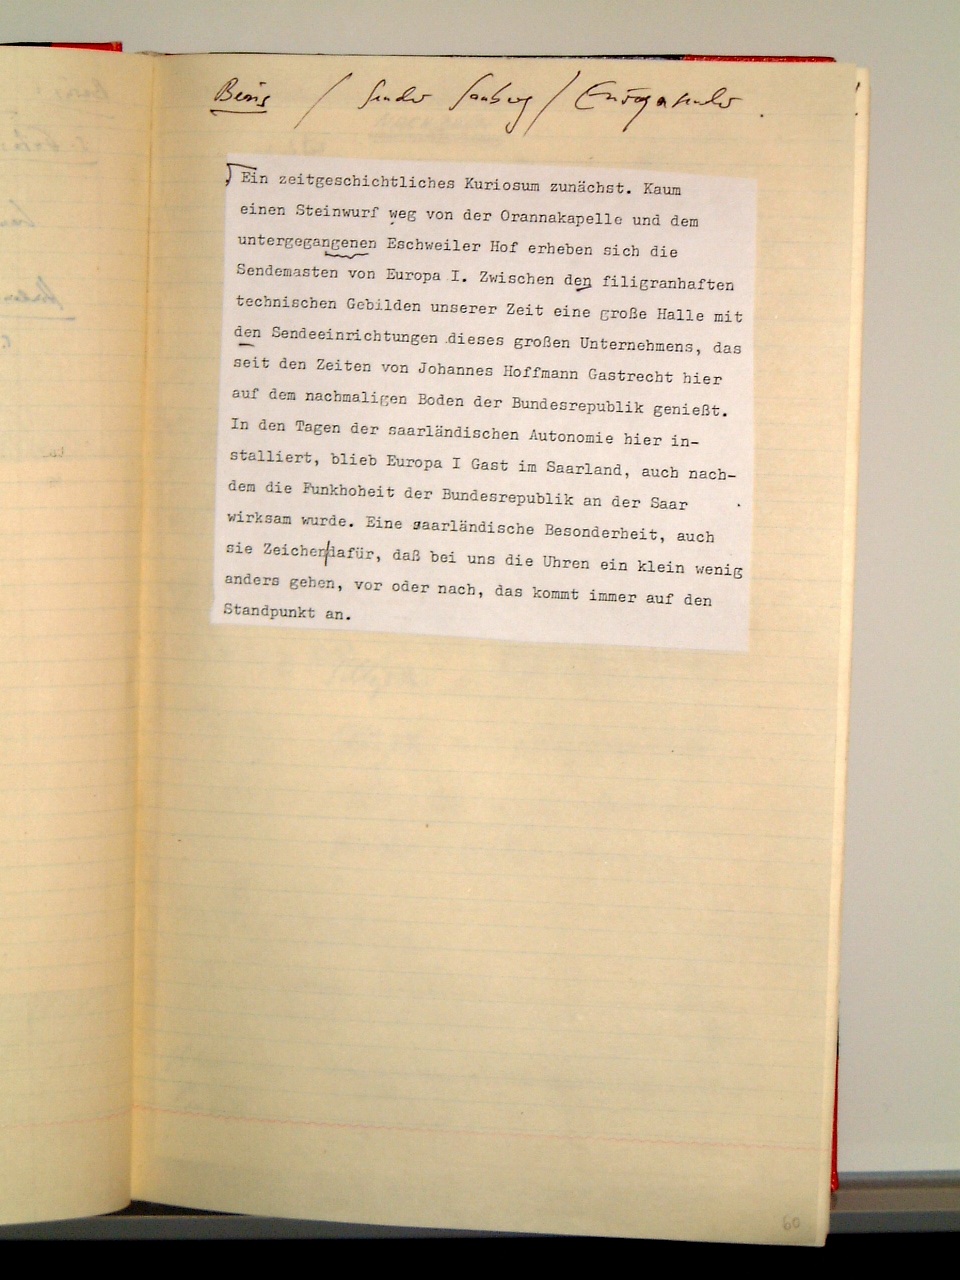 Beris / Sender Saarburg / Europasender.
Ein zeitgeschichtliches Kuriosum zunächst. Kaum
einen Steinwurf weg von der Orannakapelle und dem
untergegangenen Eschweiler Hof erheben sich die
Sendemasten von Europa I. Zwischen den filigranhaften
technischen Gebilden unserer Zeit eine große Halle mit
den Sendeeinrichtungen dieses großen Unternehmens, das
seit den Zeiten von Johannes Hoffmann Gastrecht hier
auf dem nachmaligen Boden der Bundesrepublik genießt.
In den Tagen der saarländischen Autonomie hier in-
stalliert, blieb Europa I Gast im Saarland, auch nach-
dem die Funkhoheit der Bundesrepublik an der Saar
wirksam wurde. Eine saarländische Besonderheit, auch
sie Zeichen dafür, daß bei uns die Uhren ein klein wenig
anders gehen, vor oder nach, das kommt immer auf den
Standpunkt an.
60